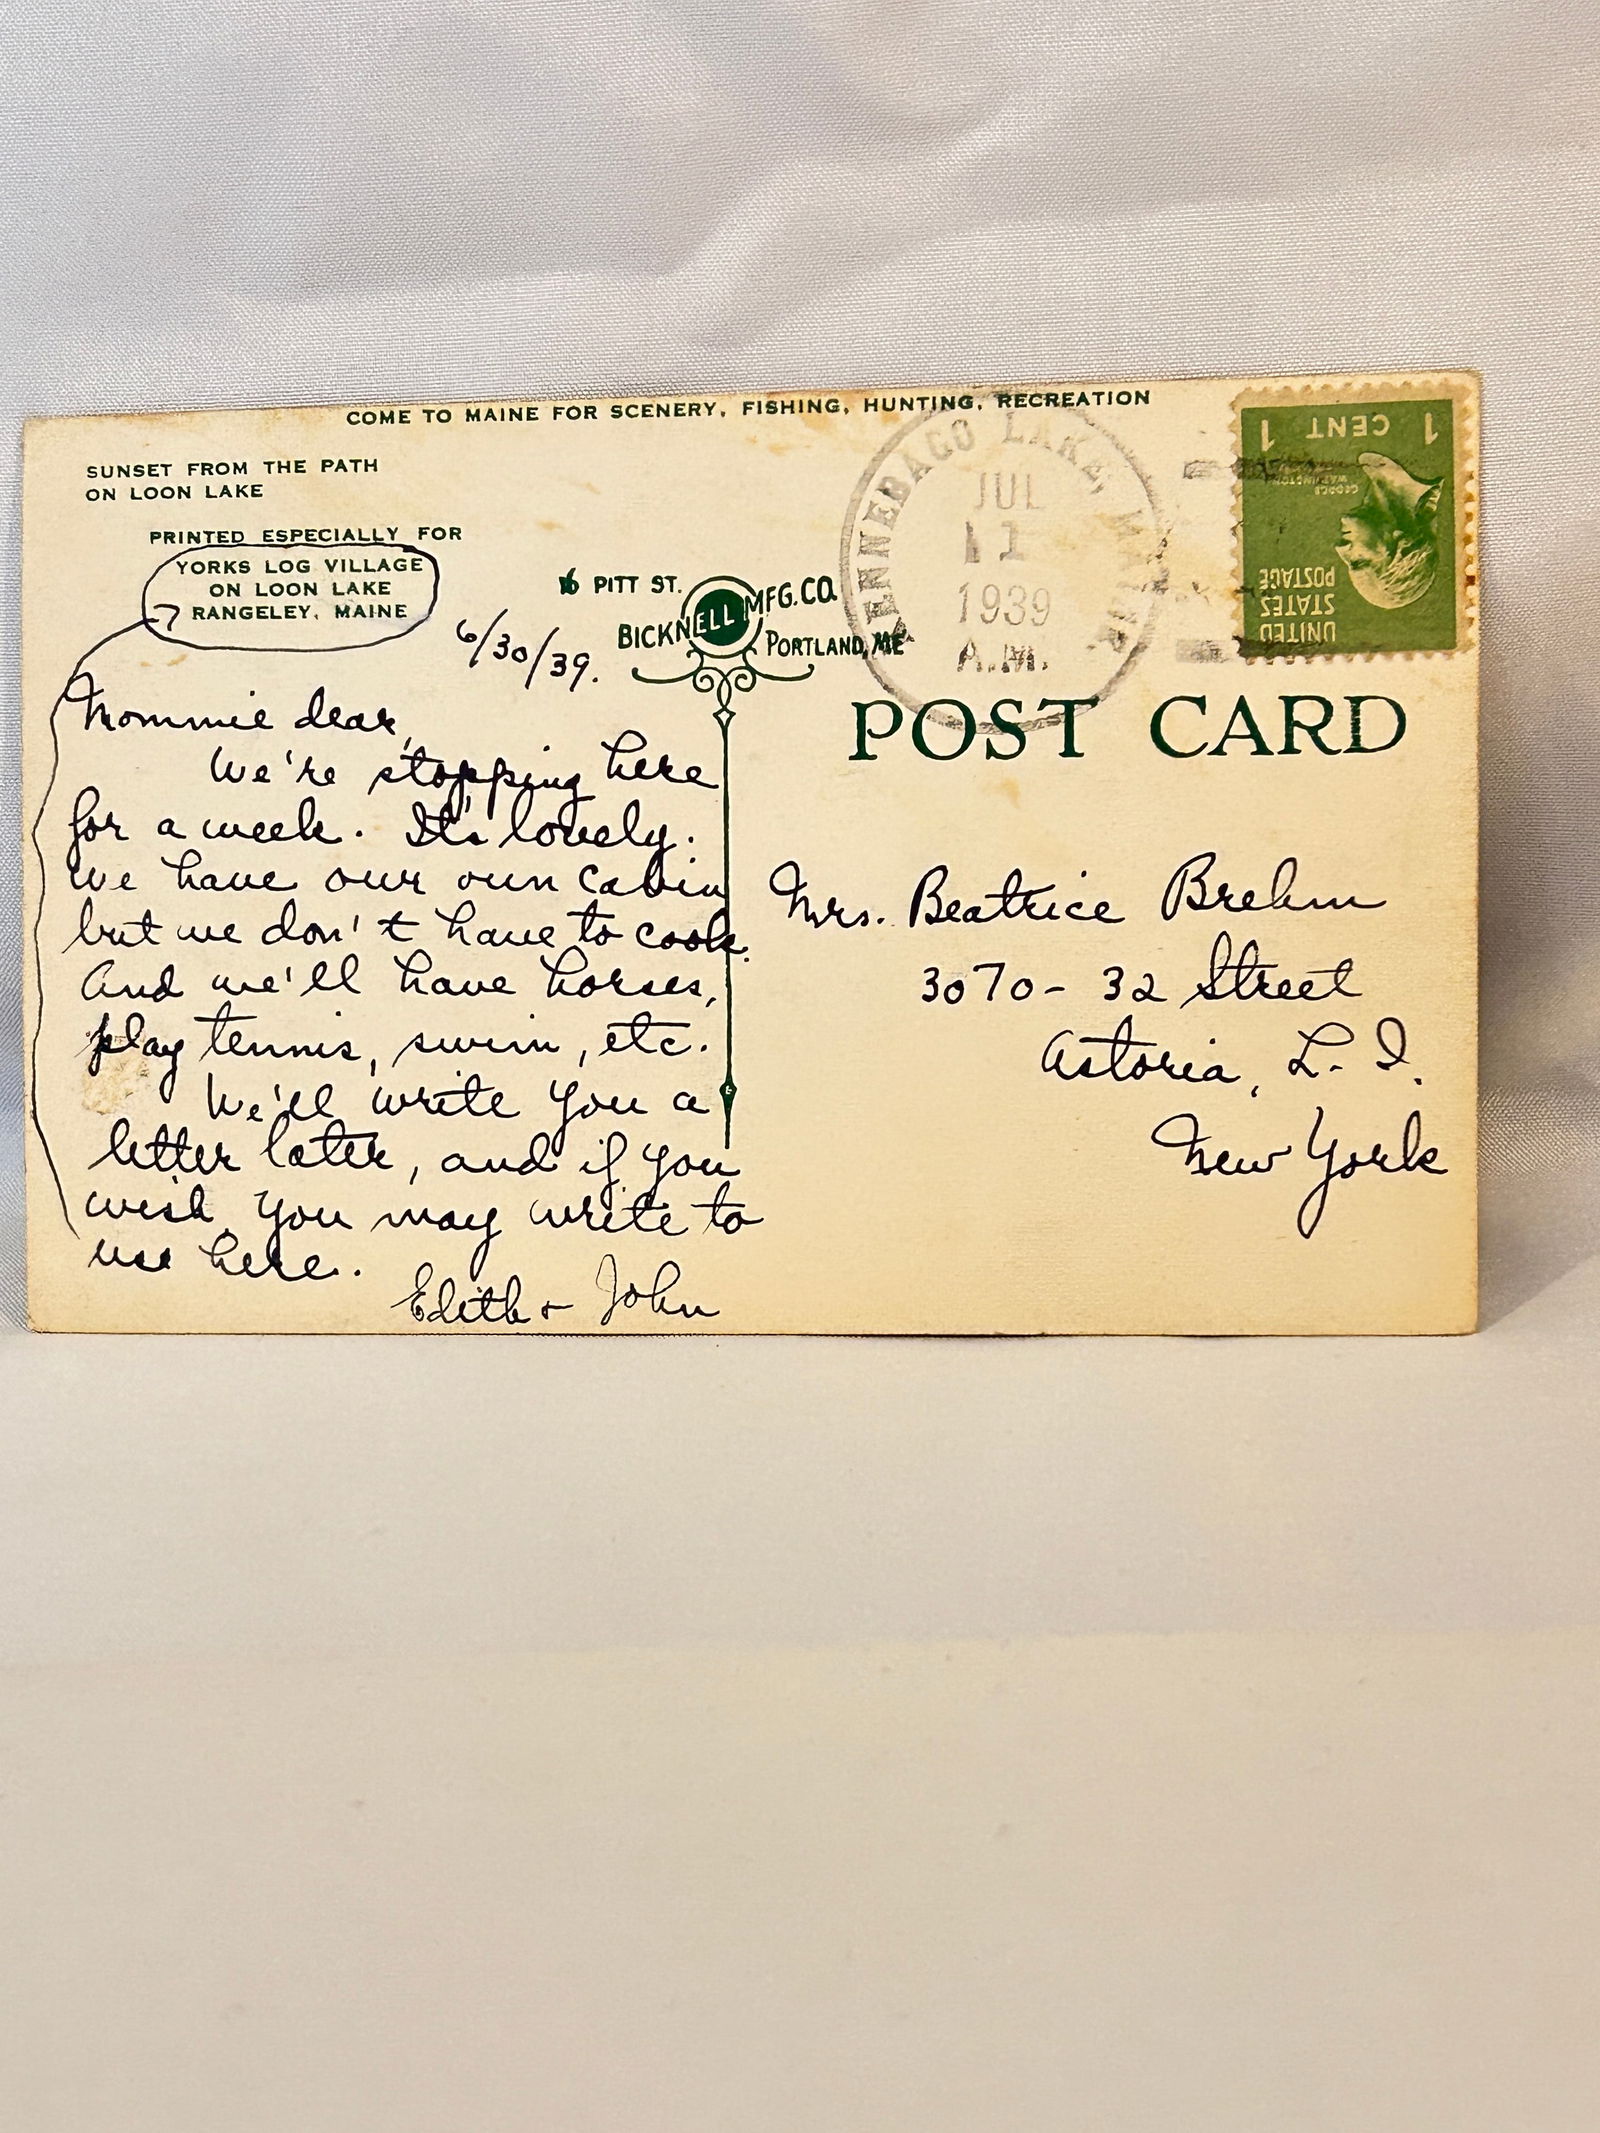 COME TO MAINE FOR SCENERY, FISHING, HUNTING, RECREATION
SUNSET FROM THE PATH
ON LOON LAKE
PRINTED ESPECIALLY FOR
YORKS LOG VILLAGE
ON LOON LAKE
RANGELEY, MAINE
6/30/39.
Mommie dear,
We're stopping here
for a week. It's lovely.
We have our own cabin
but we don't have to cook.
And we'll have horses,
play tennis, swim, etc.
We'll write you a
letter later, and if you
wish you may write to
us here.
Edith & John
PITT ST.
BICKNELL MFG. CO.
PORTLAND, ME
KENNEBAGO LAKE, MAINE
JUL
1
1939
A.M.
1 CENT 1
GEORGE
WASHINGTON
UNITED
STATES
POSTAGE
POST CARD
Mrs. Beatrice Brehm
3070 - 32 Street
Astoria, L. I.
New York